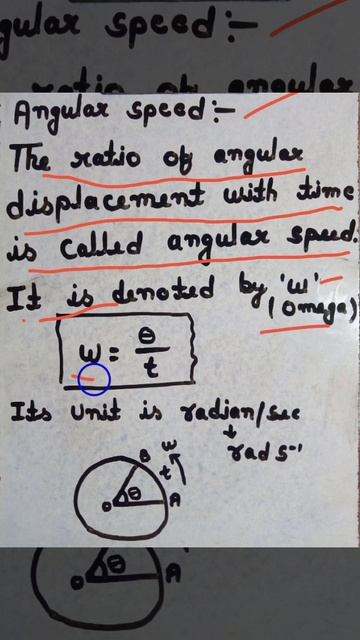 gular speed:-
ratio of angular
Angular speed:-
The ratio of angular
displacement with time
is called angular speed.
It is denoted by 'ω'
(Omega)
ω = θ/t
Its unit is radian/sec
rad s⁻¹
B ω
t
θ
O A
θ
O A